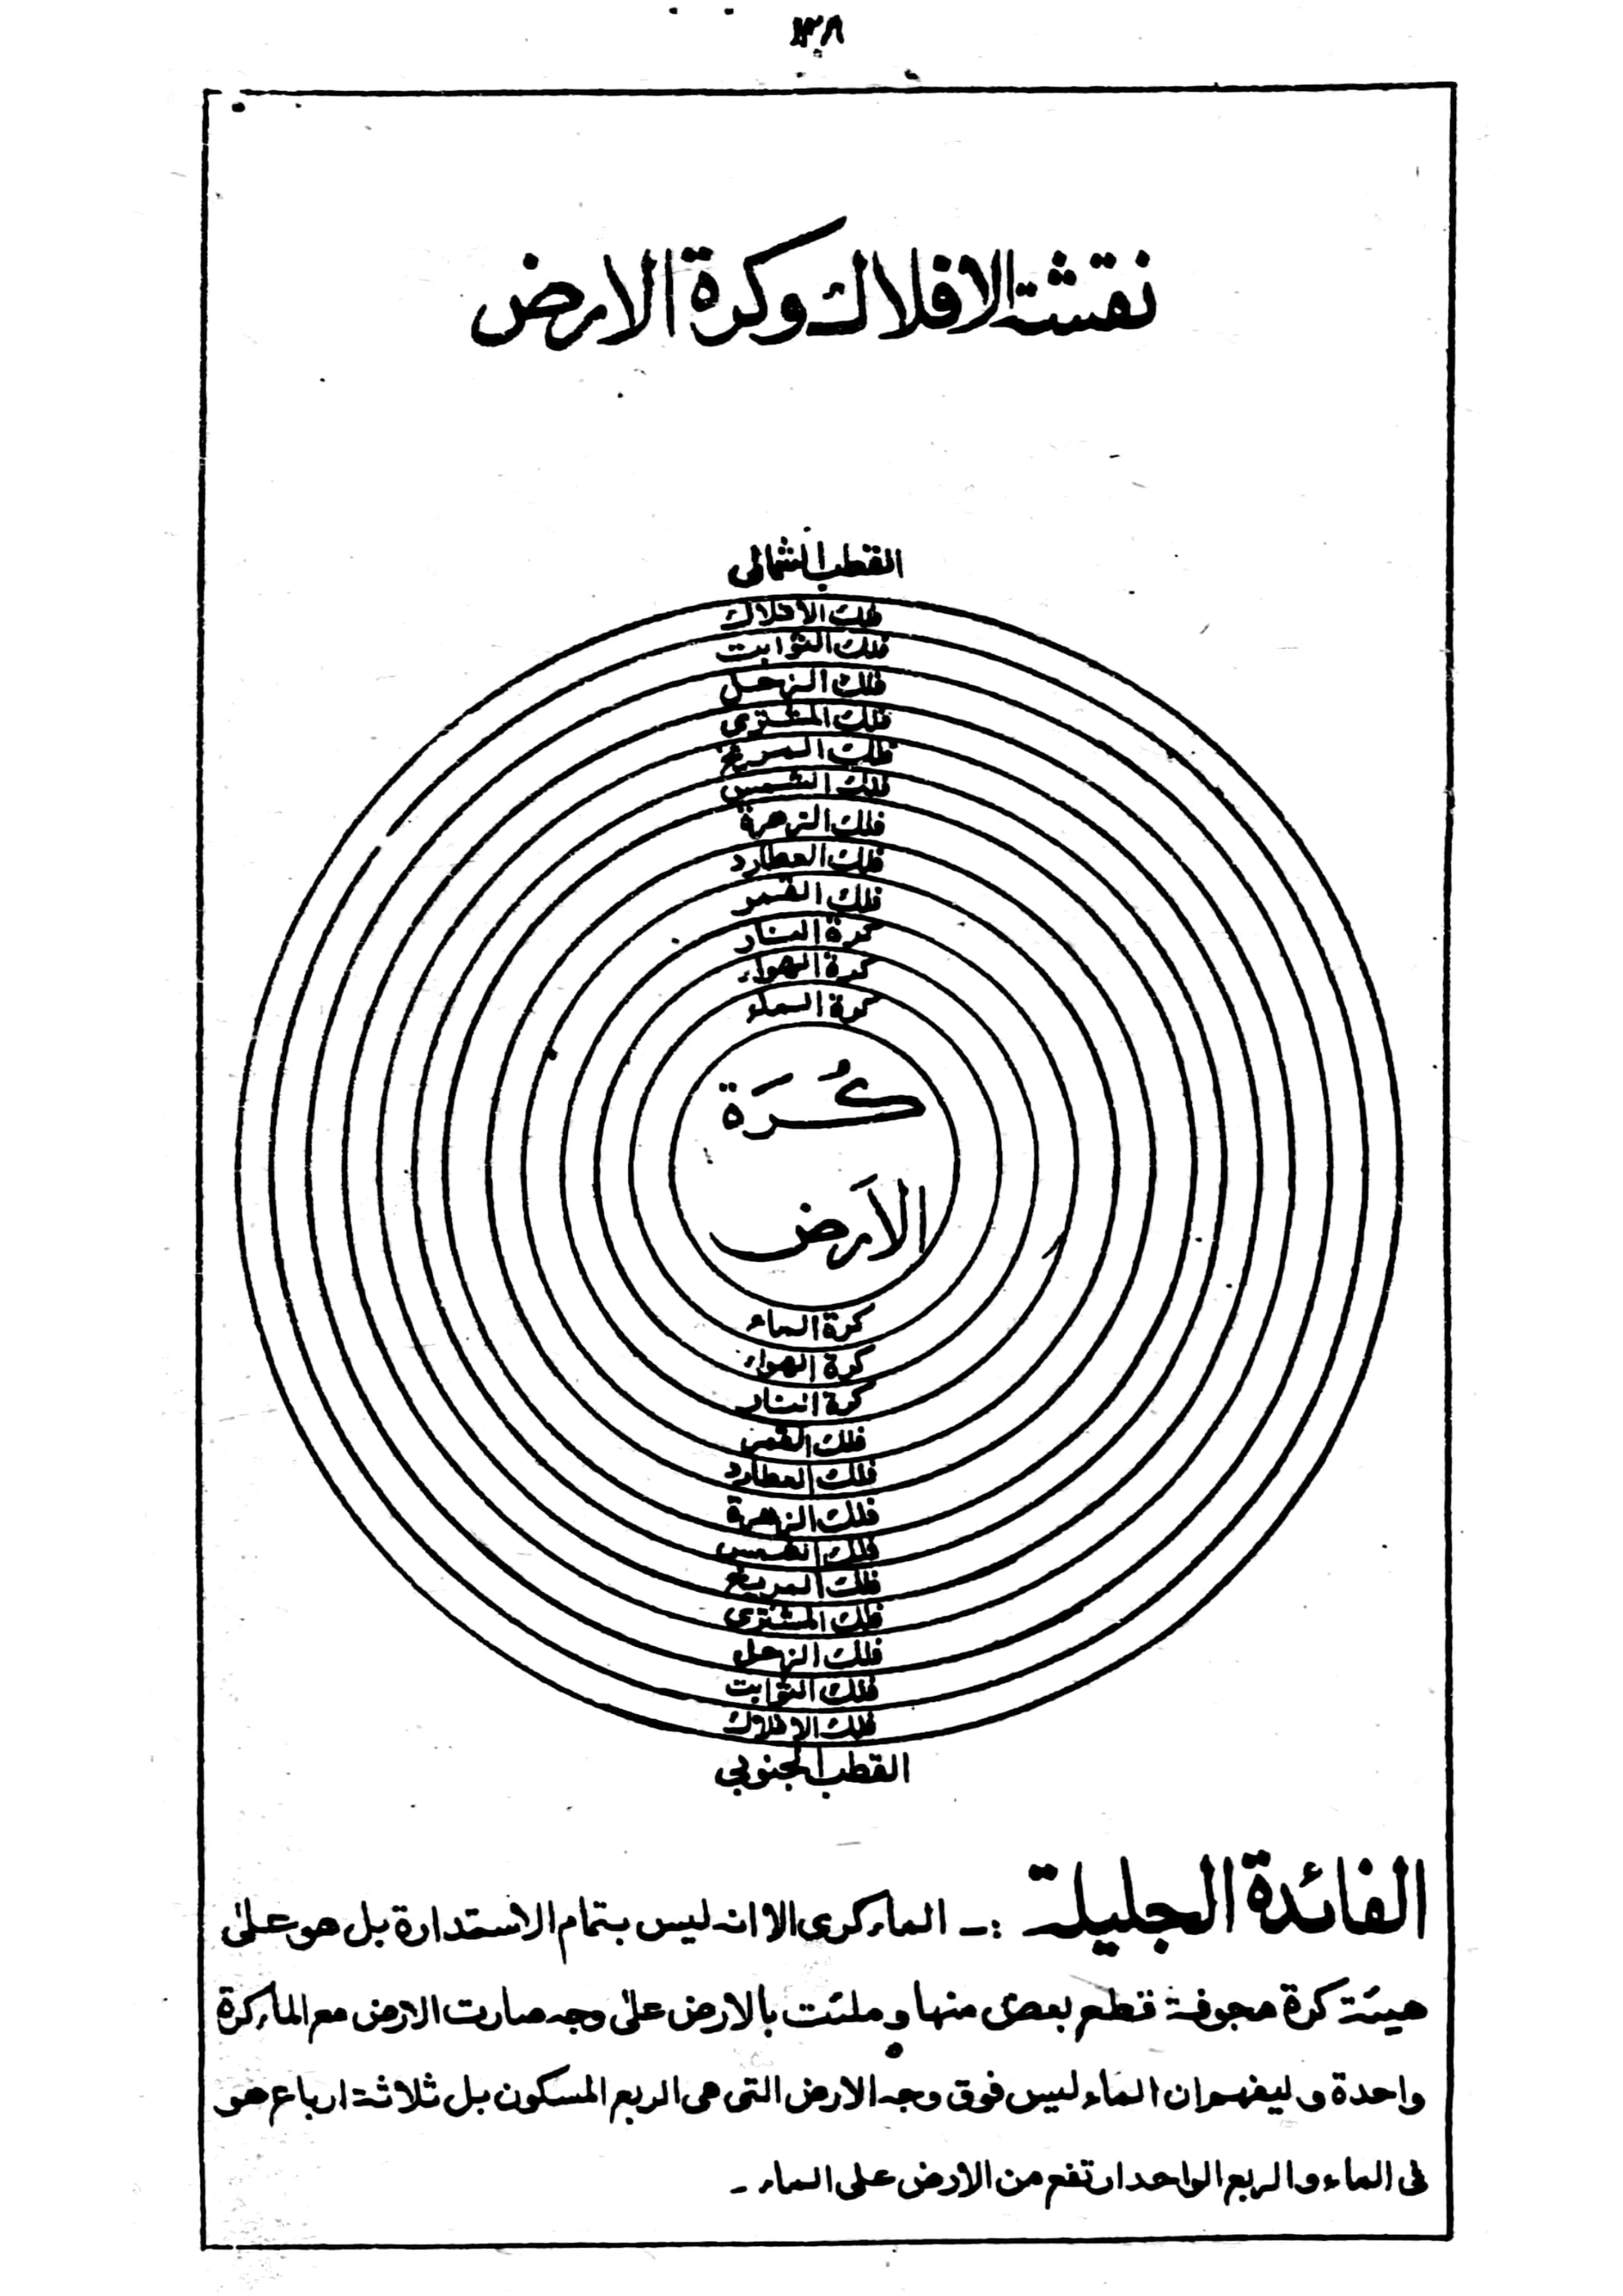 ١٣٨
نقشة الافلاك وكرة الارض
القطب الشمالى
فلك الافلاك
فلك الثوابت
فلك الزحل
فلك المشترى
فلك المريخ
فلك الشمس
فلك الزهرة
فلك العطارد
فلك القمر
كرة النار
كرة الهواء
كرة الماء
كُرَة
الاَرض
كرة الماء
كرة الهواء
كرة النار
فلك القمر
فلك العطارد
فلك الزهرة
فلك الشمس
فلك المريخ
فلك المشترى
فلك الزحل
فلك الثوابت
فلك الافلاك
القطب الجنوبي
الفائدة الجليلة :ـ الماء كرى الا انه ليس بتمام الاستدارة بل هو على
هيئة كرة مجوفة قطع بعض منها و ملئت بالارض على وجه صارت الارض مع الماء كرة
واحدة و ليفهم ان الماء ليس فوق وجه الارض التى هى الربع المسكون بل ثلاثة ارباع هو
فى الماء و الربع الواحد ارتفع من الارض على الماء ۔